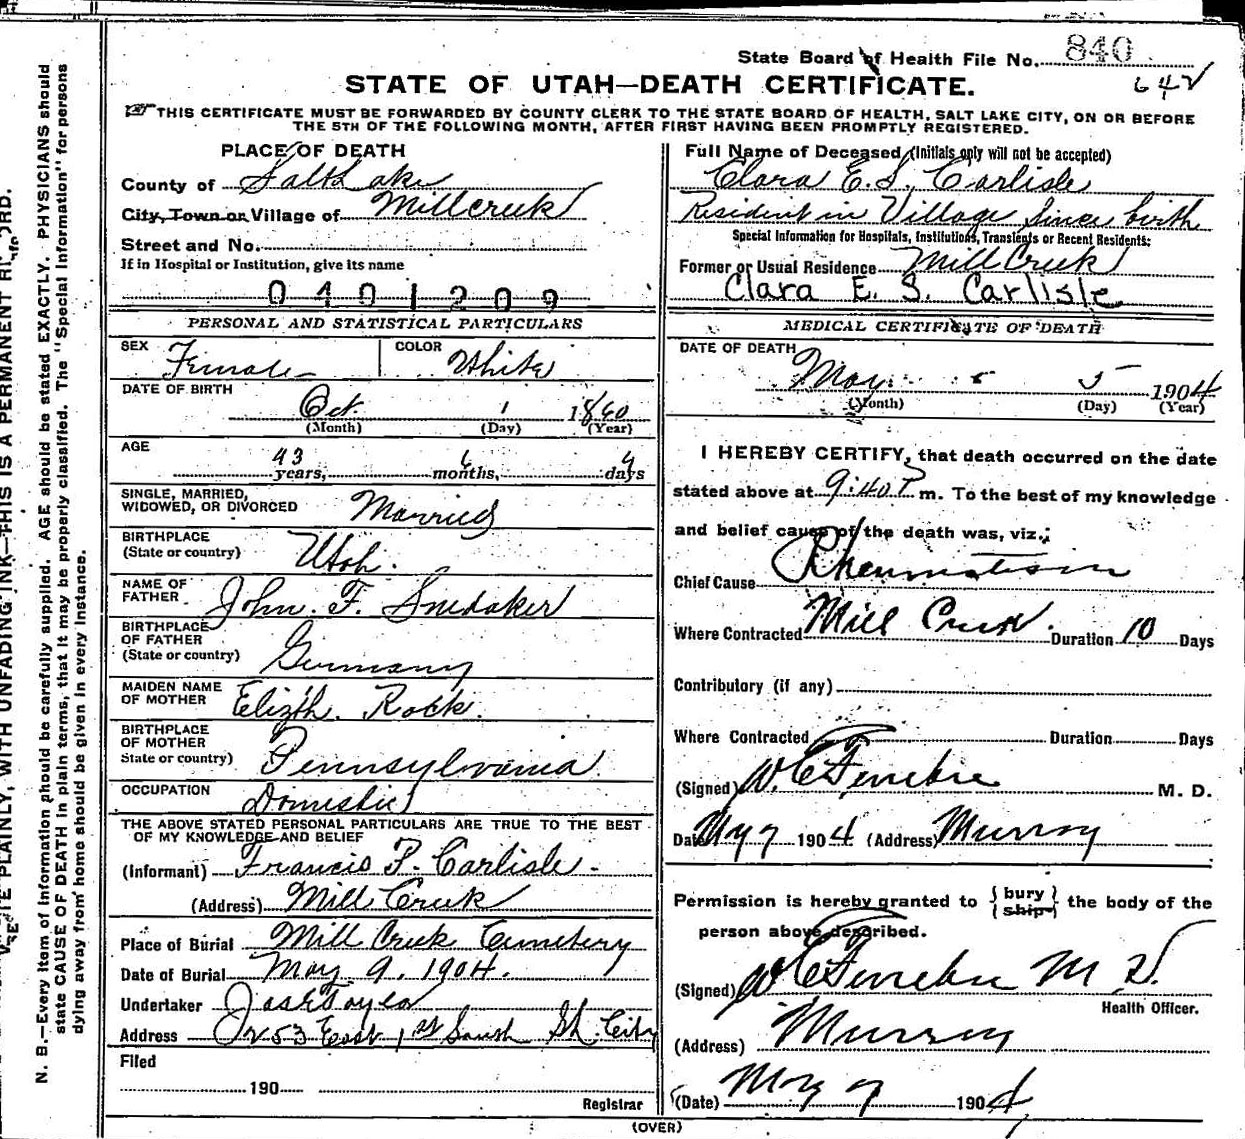 State Board of Health File No. 840
STATE OF UTAH—DEATH CERTIFICATE.
642
THIS CERTIFICATE MUST BE FORWARDED BY COUNTY CLERK TO THE STATE BOARD OF HEALTH, SALT LAKE CITY, ON OR BEFORE
THE 5TH OF THE FOLLOWING MONTH, AFTER FIRST HAVING BEEN PROMPTLY REGISTERED.
PLACE OF DEATH
County of Salt Lake
City, Town or Village of Millcreek
Street and No.
If in Hospital or Institution, give its name
0401209
Full Name of Deceased (Initials only will not be accepted)
Clara E. S. Carlisle
Resident in Village Since birth
Special Information for Hospitals, Institutions, Transients or Recent Residents:
Former or Usual Residence Mill Creek
Clara E. S. Carlisle
PERSONAL AND STATISTICAL PARTICULARS
SEX Female COLOR White
DATE OF BIRTH
Oct. 1 1860
(Month) (Day) (Year)
AGE
43 years, months, days
SINGLE, MARRIED,
WIDOWED, OR DIVORCED Married
BIRTHPLACE
(State or country) Utah.
NAME OF
FATHER John. F. Snedaker
BIRTHPLACE
OF FATHER
(State or country) Germany
MAIDEN NAME
OF MOTHER Elizth. Rock.
BIRTHPLACE
OF MOTHER
State or country) Pennsylvania
OCCUPATION Domestic
THE ABOVE STATED PERSONAL PARTICULARS ARE TRUE TO THE BEST
OF MY KNOWLEDGE AND BELIEF
(Informant) Francis P. Carlisle
(Address) Mill Creek
Place of Burial Mill Creek Cemetery
Date of Burial May 9. 1904.
Undertaker
Address 53 East 1st South City
Filed
190
Registrar
MEDICAL CERTIFICATE OF DEATH
DATE OF DEATH
May 5 1904
(Month) (Day) (Year)
I HEREBY CERTIFY, that death occurred on the date
stated above at 9:40 P m. To the best of my knowledge
and belief cause of the death was, viz.;
Chief Cause Rheumatism
Where Contracted Mill Creek. Duration 10 Days
Contributory (if any)
Where Contracted Duration Days
(Signed) M. D.
Date May 7 1904 (Address) Murray
Permission is hereby granted to bury ship the body of the
person above described.
(Signed) M D.
Health Officer.
(Address) Murray
(Date) May 7 1904
(OVER)
N. B.—Every item of information should be carefully supplied. AGE should be stated EXACTLY. PHYSICIANS should
state CAUSE OF DEATH in plain terms, that it may be properly classified. The "Special Information" for persons
dying away from home should be given in every instance.
PLAINLY, WITH UNFADING INK—THIS IS A PERMANENT